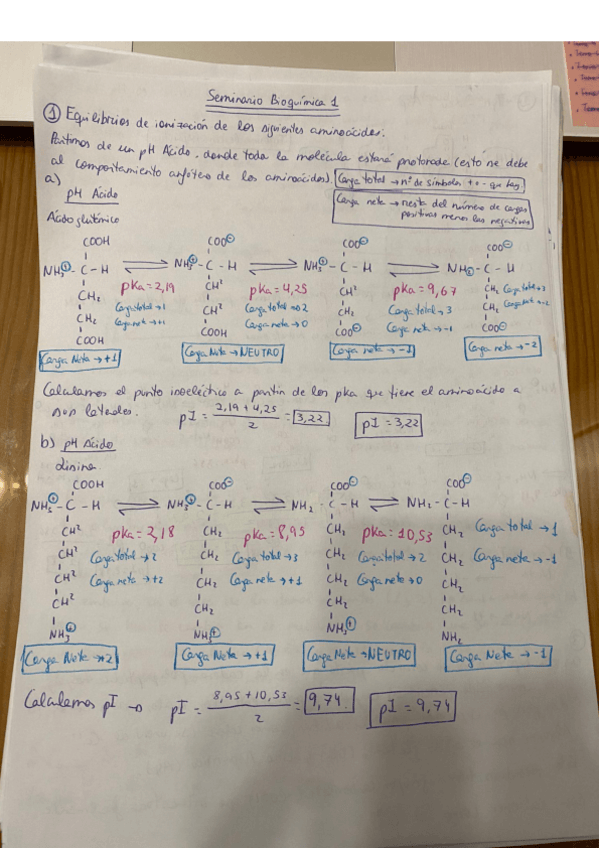 Seminario Bioquímica 1
① Equilibrios de ionización de los siguientes aminoácidos.
Partimos de un pH Ácido, donde toda la molécula estará protonada (esto se debe
al comportamiento anfótero de los aminoácidos). Carga total → nº de símbolos + o - que hay.
a) pH Ácido
Carga neta → resta del número de cargas
positivas menos las negativas
Ácido glutámico
COOH COO⊖ COO⊖ COO⊖
NH₃⊕ - C - H ⇌ NH₃⊕ - C - H ⇌ NH₃⊕ - C - H ⇌ NH₂ - C - H
pKa = 2,19 pKa = 4,25 pKa = 9,67
CH₂ CH² CH² CH₂
Carga total → 1 Carga total → 2 Carga total → 3 Carga total → 3
Carga neta → +1 Carga neta → 0 Carga neta → -1 Carga neta → -2
CH₂ CH² CH₂ CH₂
COOH COOH COO⊖ COO⊖
Carga Neta → +1 Carga Neta → NEUTRO Carga neta → -1 Carga neta → -2
Calculamos el punto isoeléctrico a partir de los pka que tiene el aminoácido a
sus laterales. pI = 2,19 + 4,25 / 2 = 3,22 pI = 3,22
b) pH Ácido
lisina
COOH COO⊖ COO⊖ COO⊖
NH₃⊕ - C - H ⇌ NH₃⊕ - C - H ⇌ NH₂ - C - H ⇌ NH₂ - C - H
pKa = 2,18 pKa = 8,95 pKa = 10,53
CH² CH₂ CH₂ CH₂
Carga total → 2 Carga total → 3 Carga total → 2 Carga total → 1
CH² CH₂ CH₂ CH₂
Carga neta → +2 Carga neta → +1 Carga neta → 0 Carga neta → -1
CH² CH₂ CH₂ CH₂
CH² CH₂ CH₂ CH₂
NH₃⊕ NH₃⊕ NH₃⊕ NH₂
Carga Neta → +2 Carga Neta → +1 Carga Neta → NEUTRO Carga Neta → -1
Calculamos pI → pI = 8,95 + 10,53 / 2 = 9,74. pI = 9,74